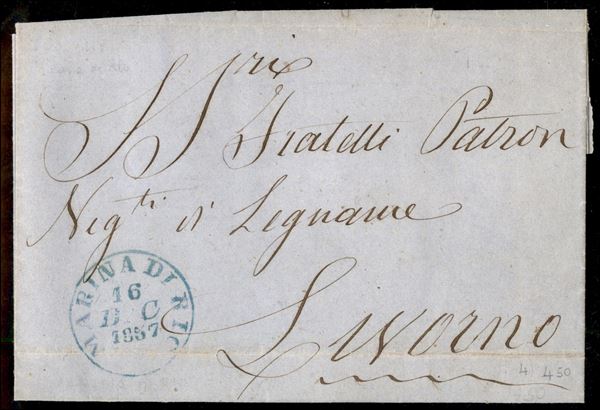 SSri
Fratelli Patron
Neg.ti di Legname
Livorno
MARINA DI RIO
16
DC
1857
4 450